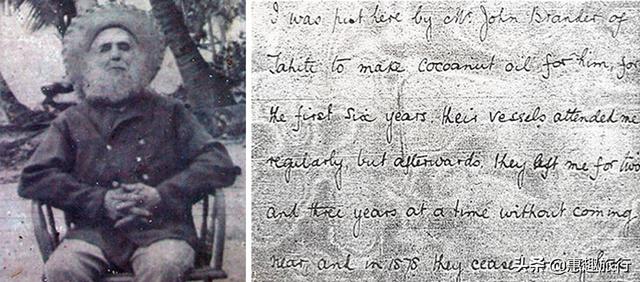 I was put here by Mr. John Brander of
Tahiti to make cocoanut oil for him, for
the first six years their vessels attended me
regularly, but afterwards they left me for two
and three years at a time without coming
near, and in 1878 they ceased
头条 @惠趣旅行